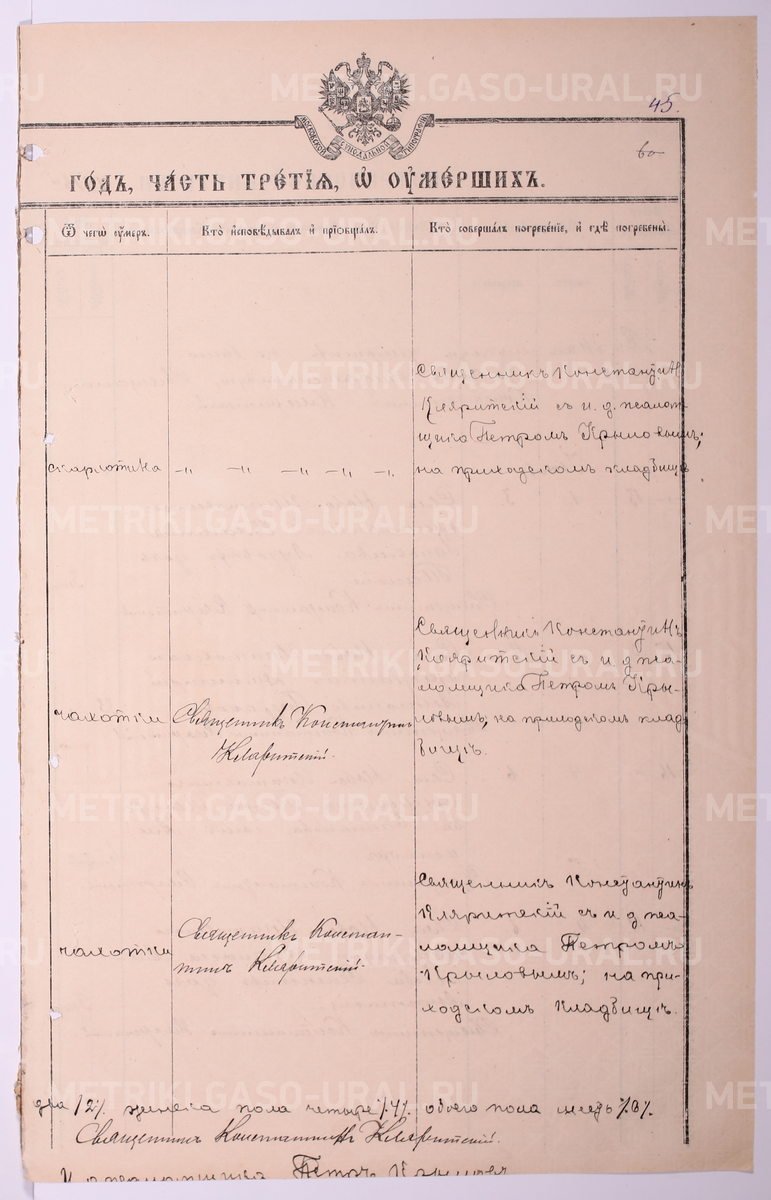 METRIKI.GASO-URAL.RU
45.
во
МОСКОВСКОЙ СѴНОДАЛЬНОЙ ТИПОГРАФІИ
ГО́ДЪ, ЧА́СТЬ ТРЕ́ТІЯ, Ѡ ОУМЕ́РШИХЪ.
Ѿ чегѡ̀ оу́меръ.
Кто̀ и҆сповѣ́дывалъ и҆ прїѡбща́лъ.
Кто̀ соверша́лъ погребе́нїе, и҆ гдѣ̀ погребены̀.
скарлотина
-"- -"- -"- -"- -"-
Священникъ Константинъ
Кляритскій съ и. д. псалом-
щика Петромъ Крыловымъ;
на приходскомъ кладбищѣ
чахотки
Священникъ Константинъ
Кляритскій.
Священникъ Константинъ
Кляритскій съ и. д. пса-
ломщика Петромъ Кры-
ловымъ; на приходскомъ клад-
бищѣ.
чахотки
Священникъ Констан-
тинъ Кляритскій.
Священникъ Константинъ
Кляритскій съ и. д. пса-
ломщика Петромъ
Крыловымъ; на при-
ходскомъ кладбищѣ.
два /2/. женска пола четыре /4/. обоего пола шесть /6/.
Священникъ Константинъ Кляритскій.
И. д. псаломщика Петръ Крыловъ